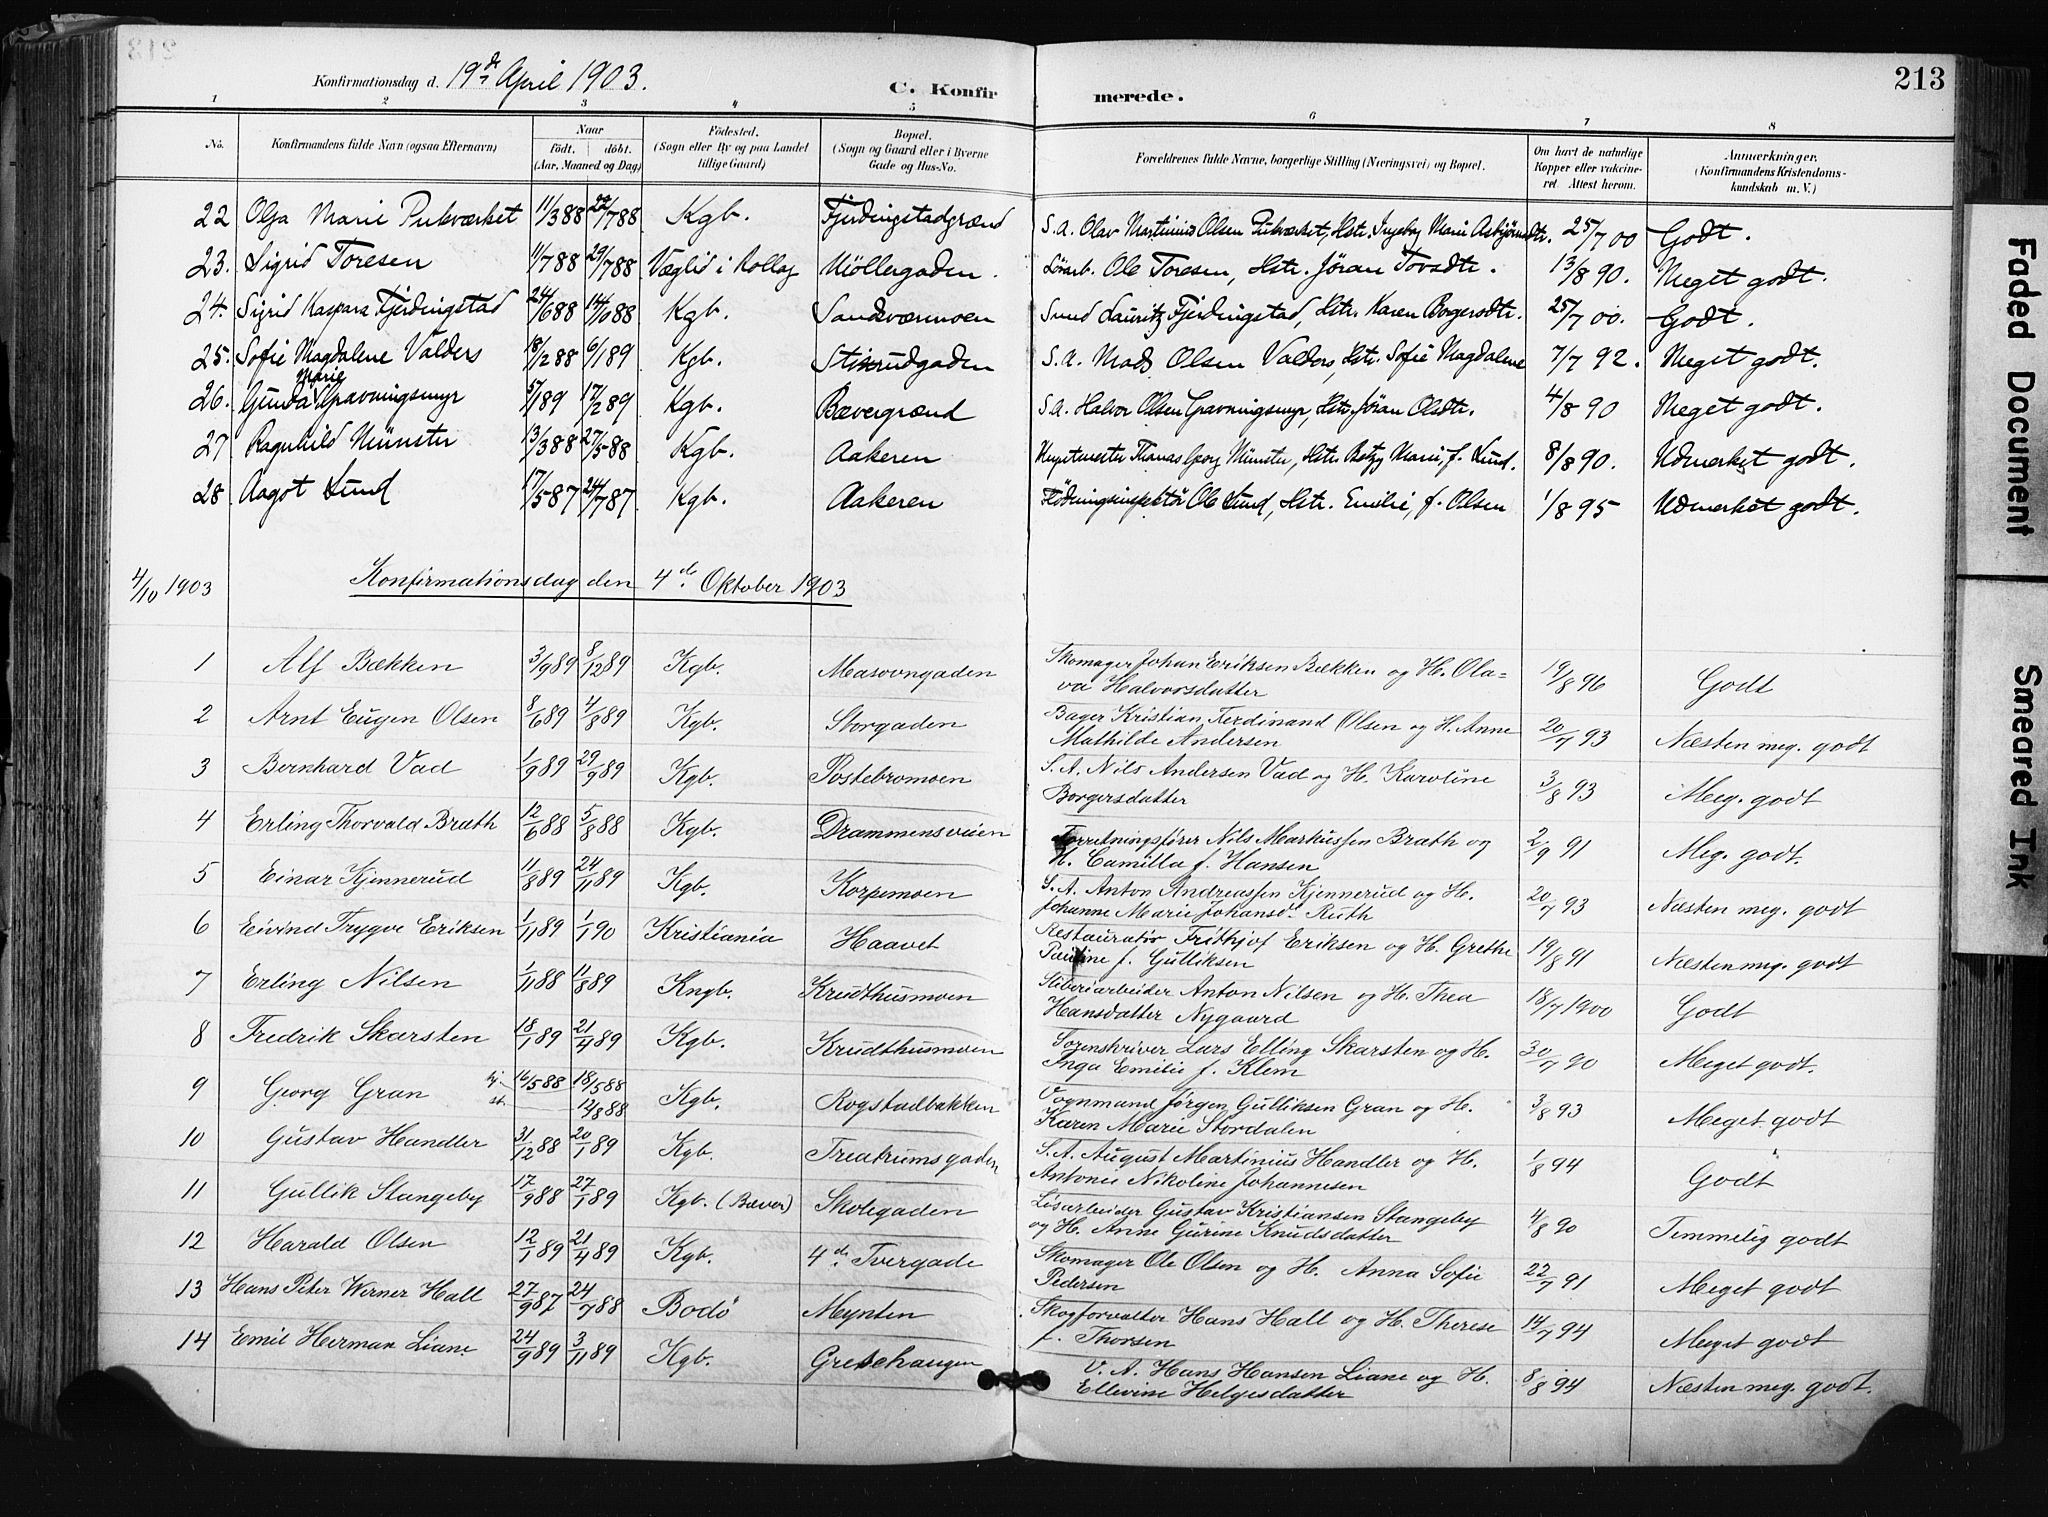 213
Konfirmationsdag d. 19de April 1903.
C. Konfirmerede.
213
1 2 3 4 5 6 7 8
No. | Konfirmandens fulde Navn (ogsaa Efternavn) | Naar födt. döbt. (Aar, Maaned og Dag) | Födested. (Sogn eller By og paa Landet tillige Gaard) | Bopæl. (Sogn og Gaard eller i Byerne Gade og Hus-No. | Forældrenes fulde Navne, borgerlige Stilling (Næringsvei) og Bopæl. | Om havt de naturlige Kopper eller vakcineret Attest herom. | Anmerkninger. (Konfirmandens Kristendomskundskab m. V.)
22 Olga Marie Pukværket 11/3 88 22/7 88 Kgb. Fjerdingstadgrænd S.A. Olav Martinius Olsen Pukværket, Hstr. Ingeborg Marie Asbjørnsdtr. 25/7 00 Godt.
23. Sigrid Toresen 1/7 88 29/7 88 Væglid i Rollag Möllergaden. Lörarb. Ole Toresen, Hstr. Jöran Tovsdtr. 13/8 90. Meget godt.
24. Sigrid Kaspara Fjerdingstad 24/6 88 14/10 88 Kgb. Sandsværmoen Smed Lauritz Fjerdingstad, Hstr. Karen Borgersdtr. 25/7 00. Godt.
25. Sofie Magdalene Valders 18/2 88 6/1 89 Kgb. Stixrudgaden S.A. Mads Olsen Valders, Hstr. Sofie Magdalene 7/7 92. Meget godt.
26. Gunda Marie Gravningsmyr 5/1 89 17/2 89 Kgb. Bævergrænd S.A. Halvor Olsen Gravningsmyr, Hstr. Jöran Olsdtr. 4/8 90 Meget godt.
27 Ragnhild Münster 13/3 88 27/5 88 Kgb. Aakeren Hyttemester Thomas Georg Münster, Hstr. Betzy Marie, f. Lund. 8/8 90. Udmerket godt.
28 Aagot Lund 17/5 87 24/7 87. Kgb. Aakeren Flödningsinspektör Ole Lund, Hstr. Emilie, f. Olsen 1/8 95 Udmerket godt.
4/10 1903 Konfirmationsdag den 4de Oktober 1903
1 Alf Bækken 3/9 89 8/12 89 Kgb. Masovngaden Skomager Johan Eriksen Bækken og H. Ola-
va Halvorsdatter 19/8 96 Godt
2 Arnt Eugen Olsen 8/6 89 4/8 89 Kgb. Storgaden Bager Kristian Ferdinand Olsen og H. Anne
Mathilde Andersen 20/7 93 Næsten meg. godt
3 Bernhard Vad 1/9 89 29/9 89 Kgb. Postebromoen S.A. Nils Andersen Vad og H. Karoline
Borgersdatter 3/8 93 Meg. godt
4 Erling Thorvald Bræth 12/6 88 5/8 88 Kgb. Drammensveien Forretningsfører Nils Markussen Bræth og
H. Camilla f. Hansen 2/9 91 Meg. godt.
5 Einar Kjennerud 11/8 89 24/11 89 Kgb. Korpemoen S.A. Anton Andreassen Kjennerud og H.
Johanne Marie Johansd. Ruth 20/7 93 Næsten meg. godt
6 Eivind Trygve Eriksen 1/11 89 1/1 90 Kristiania Haavet Restauratør Frithjof Eriksen og H. Grethe
Pauline f. Gulliksen 19/8 91 Næsten meg. godt
7 Erling Nilsen 1/11 88 11/8 89 Kngb. Krudthusmoen Sliberiarbeider Anton Nilsen og H. Thea
Hansdatter Nygaard 18/7 1900 Godt
8 Fredrik Skarsten 18/1 89 21/4 89 Kgb. Krudthusmoen Sorenskriver Lars Elling Skarsten og H.
Inga Emilie f. Klem 30/7 90 Meget godt.
9 Georg Gran hj. 16/5 88 18/5 88 Kgb. Rogstadbakken Vognmand Jørgen Gulliksen Gran og H.
st. 12/8 88 Karen Marie Stordalen 3/8 93 Meget godt
10 Gustav Handler 31/12 88 20/1 89 Kgb. Treatrumsgaden S.A. August Martinius Handler og H.
Antonie Nikoline Johannesen 1/8 94 Godt
11 Gullik Stangeby 17/9 88 27/1 89 Kgb. (Bæver) Skolegaden Løsarbeider Gustav Kristiansen Stangeby
og H. Anne Gurine Knudsdatter 4/8 90 Temmelig godt
12 Harald Olsen 12/1 89 21/4 89 Kgb. 4de Tvergade Skomager Ole Olsen og H. Anna Sofie
Pedersen 22/7 91 Meget godt
13 Hans Peter Werner Hall 27/9 87 24/7 88 Bodö Mynten Skogforvalter Hans Hall og H. Therese
f. Thorsen 14/7 94 Meget godt
14 Emil Herman Liane 24/9 89 3/11 89 Kgb. Gretehaugen V.A. Hans Hansen Liane og H.
Ellevine Helgesdatter 8/8 94 Næsten meg. godt.
Faded Document
Smeared Ink